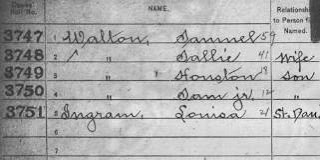 Roll No.
NAME.
Relationship
to Person f
Named.
3747 1 Walton, Samuel 59
3748 2 " Sallie 41 Wife
3749 3 " Houston 18 Son
3750 4 " Sam jr. 12 "
3751 5 Ingram, Louisa 21 St. Dau.
6
7